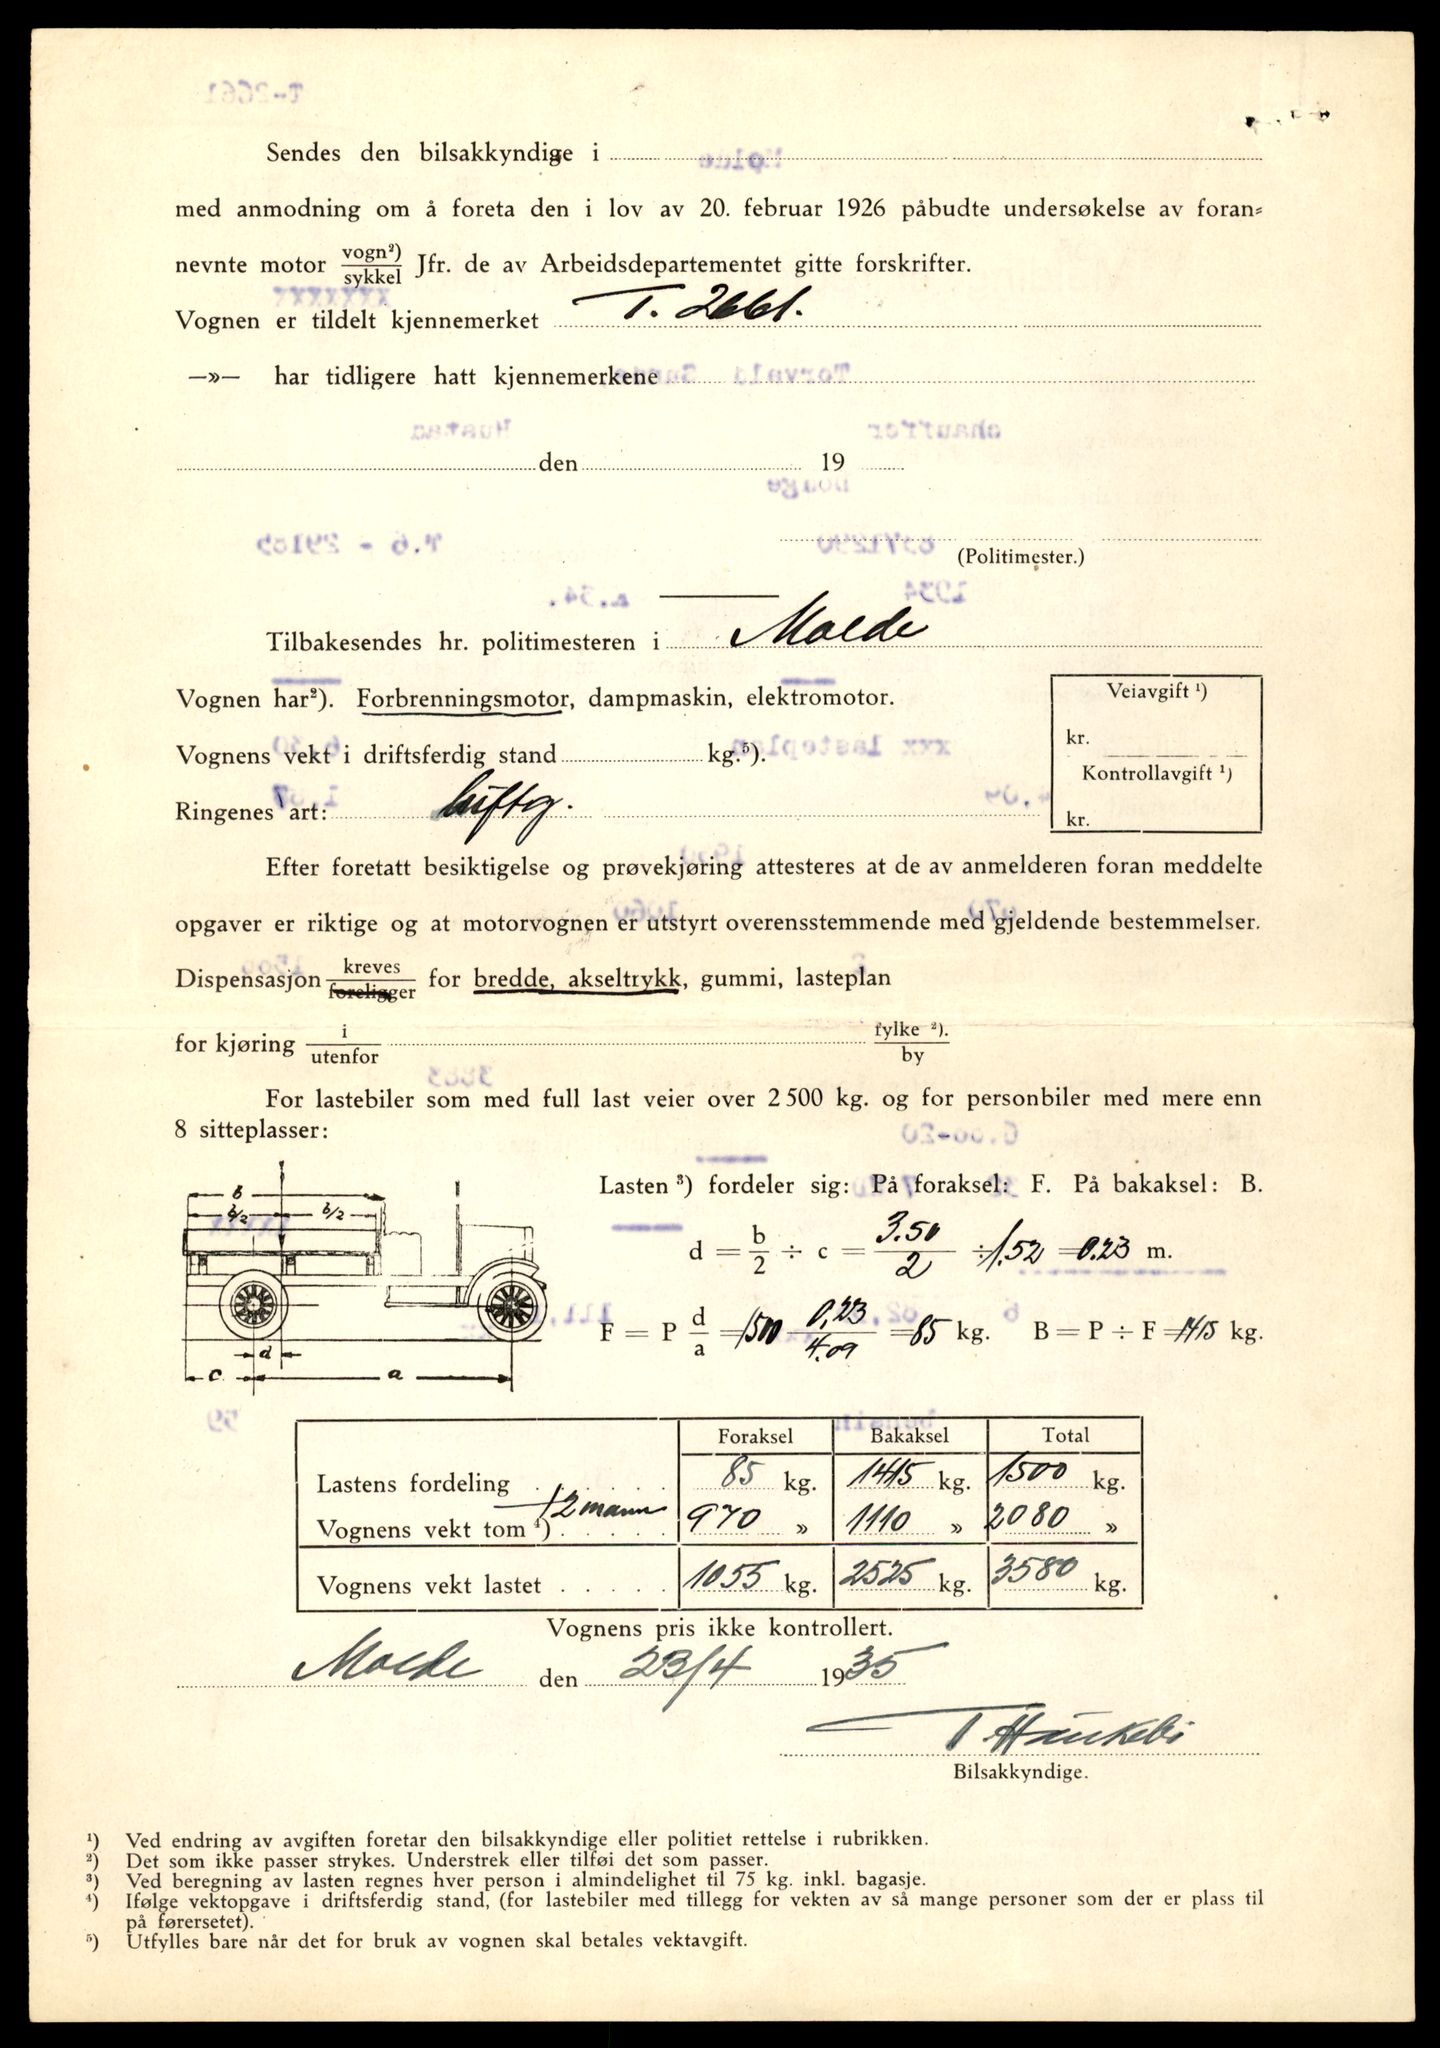 Sendes den bilsakkyndige i
med anmodning om å foreta den i lov av 20. februar 1926 påbudte undersøkelse av foran=
nevnte motor vogn²) / sykkel Jfr. de av Arbeidsdepartementet gitte forskrifter.
Vognen er tildelt kjennemerket T. 2661.
—»— har tidligere hatt kjennemerkene
den 19
(Politimester.)
Tilbakesendes hr. politimesteren i Molde
Vognen har²). Forbrenningsmotor, dampmaskin, elektromotor.
Veiavgift ¹)
kr.
Vognens vekt i driftsferdig stand kg.⁵).
Kontrollavgift ¹)
kr.
Ringenes art: luftog.
Efter foretatt besiktigelse og prøvekjøring attesteres at de av anmelderen foran meddelte
opgaver er riktige og at motorvognen er utstyrt overensstemmende med gjeldende bestemmelser.
Dispensasjon kreves / foreligger for bredde, akseltrykk, gummi, lasteplan
for kjøring i / utenfor fylke ²). / by
For lastebiler som med full last veier over 2 500 kg. og for personbiler med mere enn
8 sitteplasser:
Lasten ³) fordeler sig: På foraksel: F. På bakaksel: B.
b
b/2 b/2
d = b/2 ÷ c = 3.50/2 ÷ 1.52 = 0.23 m.
F = P d/a = 1500 0,23/4.09 = 85 kg. B = P ÷ F = 1415 kg.
d
c a
Foraksel Bakaksel Total
Lastens fordeling . . . . . . 85 kg. 1415 kg. 1500 kg.
+ 2 mann
Vognens vekt tom ⁴) . . . . . 970 » 1110 » 2080 »
Vognens vekt lastet . . . . . 1055 kg. 2525 kg. 3580 kg.
Vognens pris ikke kontrollert.
Molde den 23/4 1935
T Haukebø
Bilsakkyndige.
¹) Ved endring av avgiften foretar den bilsakkyndige eller politiet rettelse i rubrikken.
²) Det som ikke passer strykes. Understrek eller tilføi det som passer.
³) Ved beregning av lasten regnes hver person i almindelighet til 75 kg. inkl. bagasje.
⁴) Ifølge vektopgave i driftsferdig stand, (for lastebiler med tillegg for vekten av så mange personer som der er plass til
på førersetet).
⁵) Utfylles bare når det for bruk av vognen skal betales vektavgift.